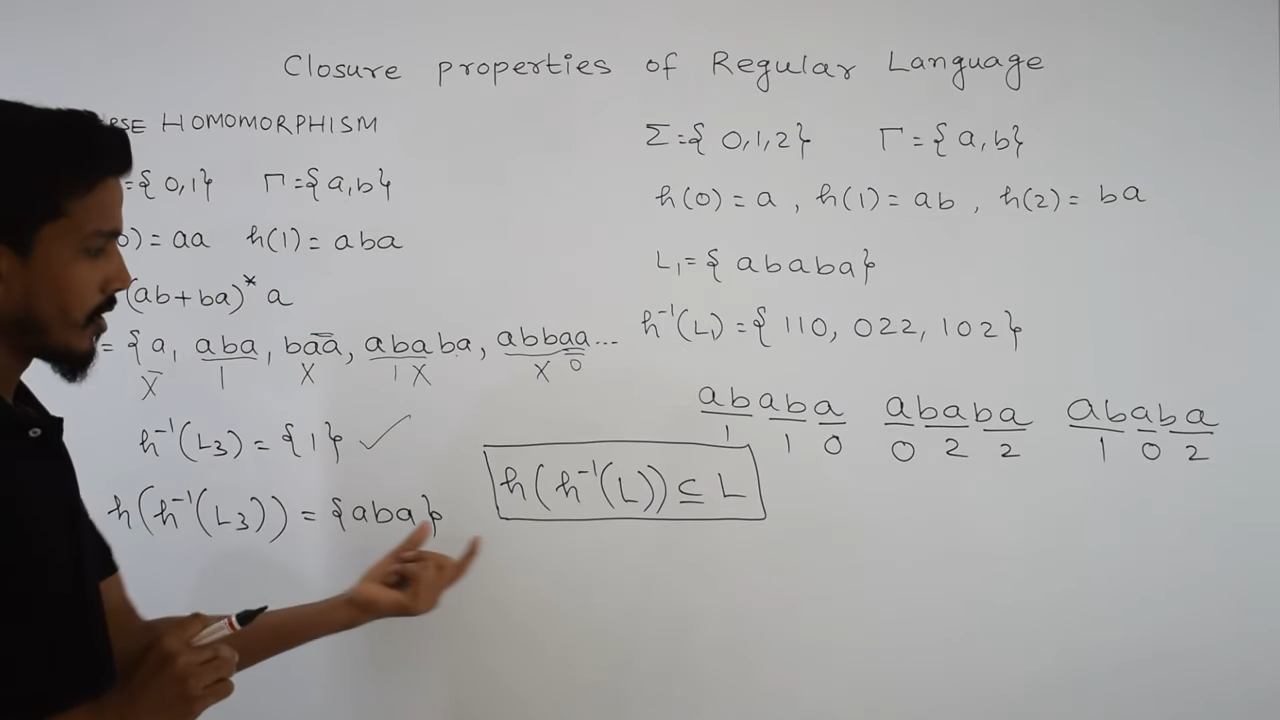 Closure properties of Regular Language
RSE HOMOMORPHISM
={ 0,1} Γ={a,b}
0)= aa h(1)= aba
(ab+ba)* a
= {a, aba, baa, ababa, abbaa...
X 1 X 1 X X 0
h⁻¹(L₃) = {1} ✓
h(h⁻¹(L₃)) = {aba}
h(h⁻¹(L)) ⊆ L
Σ={ 0,1,2} Γ={a,b}
h(0)= a , h(1)= ab , h(2)= ba
L₁={ ababa}
h⁻¹(L₁) ={ 110, 022, 102}
ababa ababa ababa
1 1 0 0 2 2 1 0 2